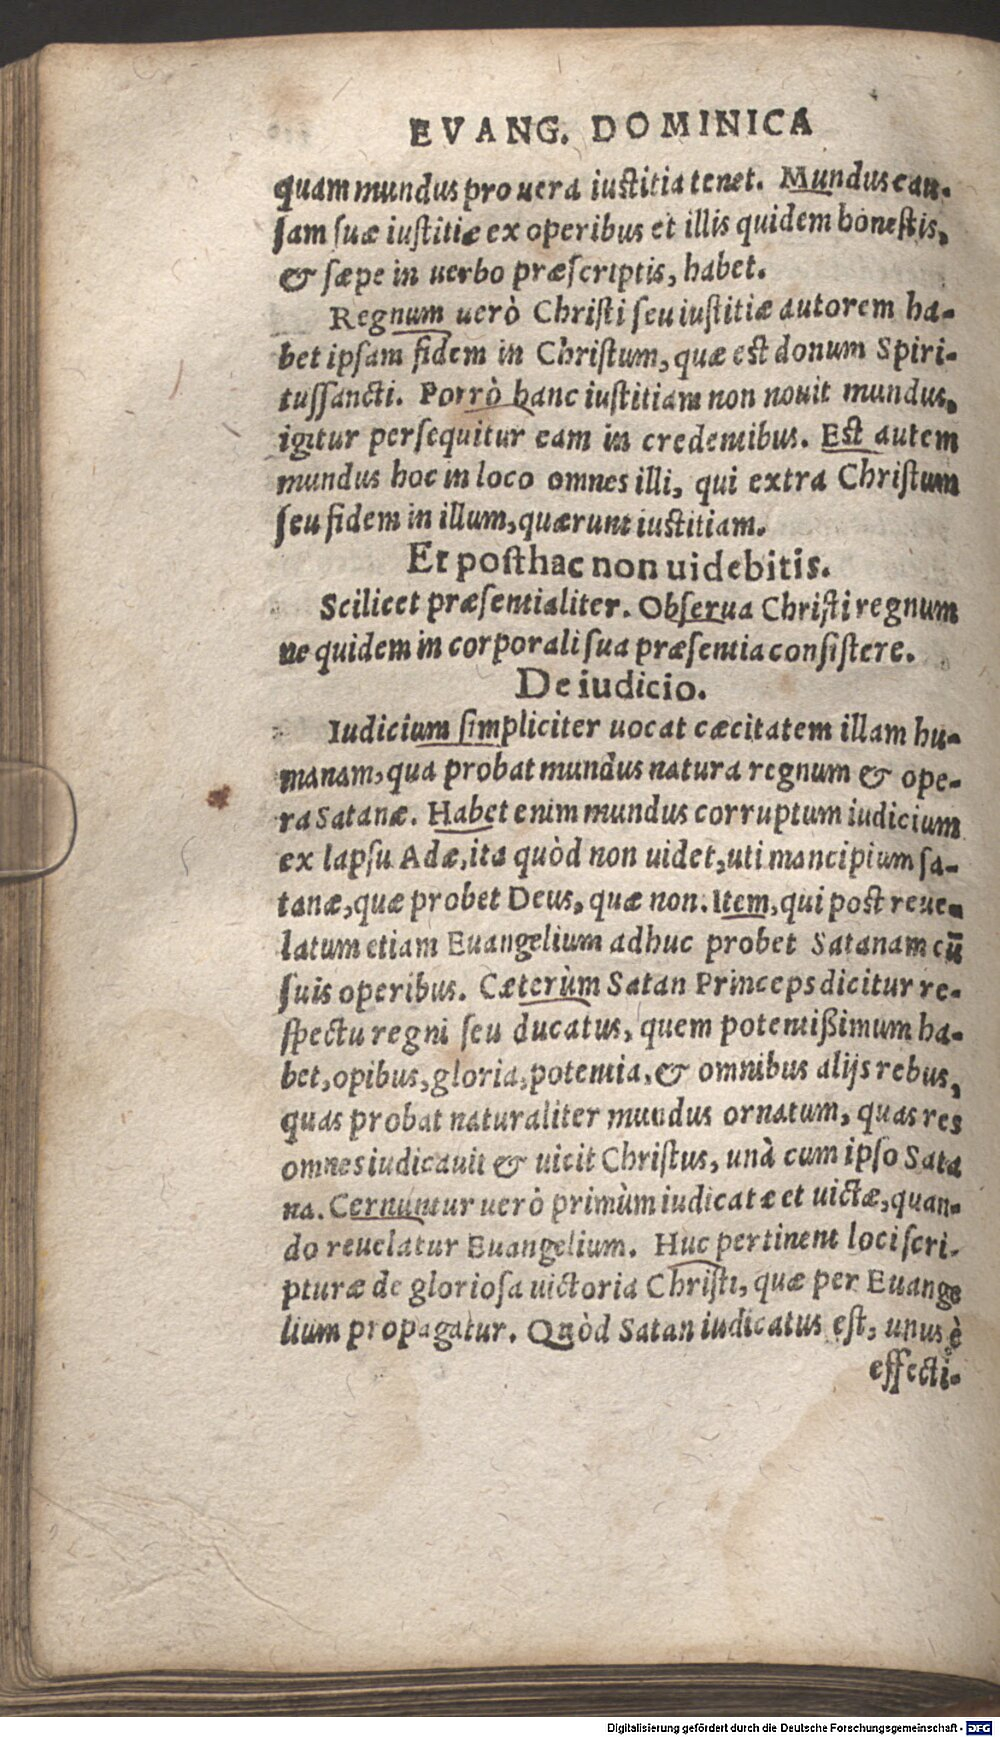 EVANG. DOMINICA
quam mundus pro uera iustitia tenet. Mundus cau-
ſam ſuæ iuſtitiæ ex operibus et illis quidem honeſtis,
& ſæpe in uerbo præſcriptis, habet.
Regnum uerò Chriſti ſeu iuſtitiæ autorem ha-
bet ipſam fidem in Chriſtum, quæ est donum Spiri-
tuſſancti. Porrò hanc iuſtitiam non nouit mundus,
igitur perſequitur eam in credentibus. Est autem
mundus hoc in loco omnes illi, qui extra Chriſtum
ſeu fidem in illum, quærunt iustitiam.
Et poſthac non uidebitis.
Scilicet præſentialiter. Obſerua Chriſti regnum
ne quidem in corporali ſua præſentia conſiſtere.
De iudicio.
Iudicium ſimpliciter uocat cæcitatem illam hu-
manam, qua probat mundus natura regnum & ope-
ra Satanæ. Habet enim mundus corruptum iudicium
ex lapſu Adæ, ita quòd non uidet, uti mancipium ſa-
tanæ, quæ probet Deus, quæ non. Item, qui post reue-
latum etiam Euangelium adhuc probet Satanam cū
ſuis operibus. Cæterùm Satan Princeps dicitur re-
ſpectu regni ſeu ducatus, quem potentißimum ha-
bet, opibus, gloria, potentia, & omnibus alijs rebus,
quas probat naturaliter mundus ornatum, quas res
omnes iudicauit & uicit Chriſtus, unà cum ipſo Sata
na. Cernuntur uerò primùm iudicatæ et uictæ, quan-
do reuelatur Euangelium. Huc pertinent loci ſcri-
pturæ de glorioſa uictoria Chriſti, quæ per Euange
lium propagatur. Quòd Satan iudicatus eſt, unus è
effecti-
Digitalisierung gefördert durch die Deutsche Forschungsgemeinschaft - DFG